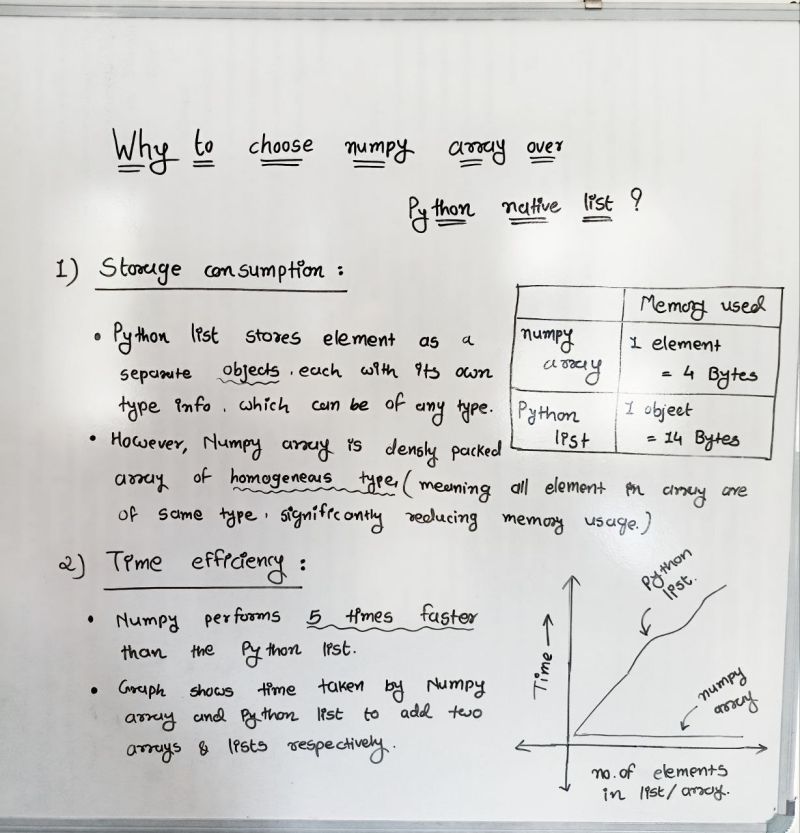 Why to choose numpy array over
Python native list ?
1) Storage consumption :
• Python list stores element as a
separate objects, each with its own
type info, which can be of any type.
Memory used
numpy array 1 element = 4 Bytes
Python list 1 object = 14 Bytes
• However, Numpy array is densly packed
array of homogeneous type, (meaning all element in array are
of same type, significantly reducing memory usage.)
2) Time efficiency :
• Numpy performs 5 times faster
than the Python list.
• Graph shows time taken by Numpy
array and Python list to add two
arrays & lists respectively.
Python
list.
Time →
numpy
array
no. of elements
in list/array.